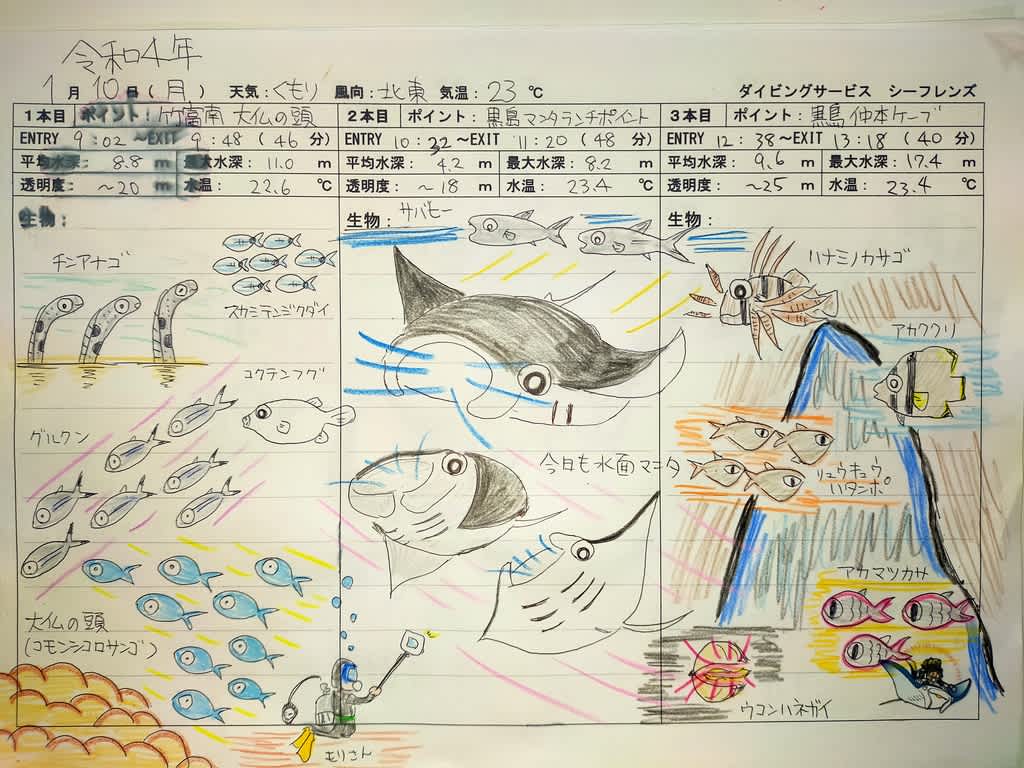 令和4年
1月10日(月) 天気:くもり 風向:北東 気温:23℃ ダイビングサービス シーフレンズ
1本目 ポイント:竹富南 大仏の頭
ENTRY 9:02~EXIT 9:48 (46 分)
平均水深: 8.8 m 最大水深: 11.0 m
透明度: ~20 m 水温: 22.6 ℃
生物:
チンアナゴ
スカシテンジクダイ
コクテンフグ
グルクン
大仏の頭
(コモンシコロサンゴ)
もりさん
2本目 ポイント:黒島マンタランチポイント
ENTRY 10:32~EXIT 11:20 (48 分)
平均水深: 4.2 m 最大水深: 8.2 m
透明度: ~18 m 水温: 23.4 ℃
生物: サバヒー
今日も水面マンタ
3本目 ポイント:黒島 仲本ケーブ
ENTRY 12:38~EXIT 13:18 (40 分)
平均水深: 9.6 m 最大水深: 17.4 m
透明度: ~25 m 水温: 23.4 ℃
生物:
ハナミノカサゴ
アカククリ
リュウキュウ
ハタンポ
アカマツカサ
ウコンハネガイ